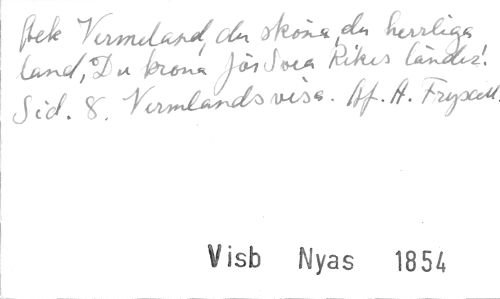 Ack Vermeland, du sköna, du herrliga
land, Du krona för Svea Rikes länder!
Sid. 8. Vermlandsvisa. Af. A. Fryxell.
Visb Nyas 1854